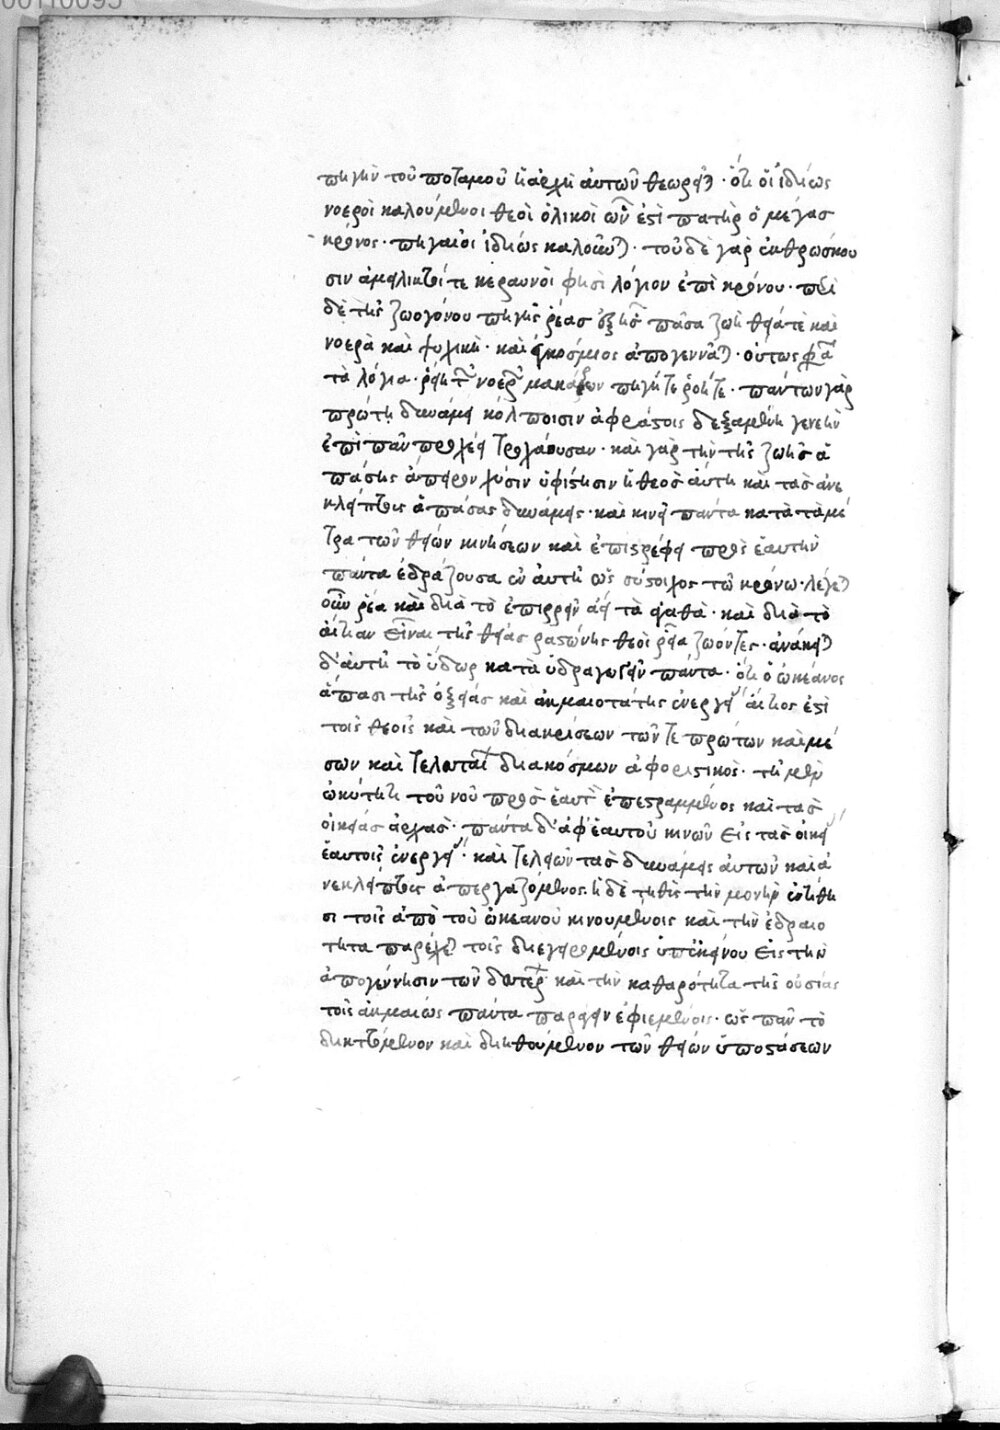 πηγὴν τοῦ ποταμοῦ ἡ ἀρχὴ αὐτῶν θεωρεῖται· ὅτι οἱ ἰδίως
νοεροὶ καλούμενοι θεοὶ ὁλικοὶ ὧν ἐστὶ πατὴρ ὁ μέγας
κρόνος· πηγαῖοι ἰδίως καλοῦνται· τοῦδε γὰρ ἐκθρώσκου
σιν ἀμείλικτοί τε κεραυνοὶ φησὶ λόγιον ἐπὶ κρόνου· περὶ
δὲ τῆς ζωογόνου πηγῆς ῥέας ἐξ ἧς πᾶσα ζωὴ θεία τὲ καὶ
νοερὰ καὶ ψυχικὴ· καὶ ἐγκόσμιος ἀπογεννᾶται· οὕτως φασὶ
τὰ λόγια· ῥείη τοι νοερῶν μακάρων πηγή τε ῥοή τε· πάντων γὰρ
πρώτη δυνάμει κόλποισιν ἀφράστοις δεξαμένη γενεὴν
ἐπὶ πᾶν προχέει τροχάουσαν· καὶ γὰρ τὴν τῆς ζωῆς ἁ
πάσης ἄπειρον χύσιν ὑφίστησιν ἡ θεὸς αὕτη καὶ τὰς ἀνε
κλείπτους ἁπάσας δυνάμεις· καὶ κινεῖ πάντα κατὰ τὰ μέ
τρα τῶν θείων κινήσεων καὶ ἐπιστρέφει πρὸς ἑαυτὴν
πάντα ἑδράζουσα ἐν αὑτῇ ὡς σύστοιχος τῷ κρόνῳ· λέγεται
οὖν ῥέα καὶ διὰ τὸ ἐπιρρεῖν ἀεὶ τὰ ἀγαθὰ· καὶ διὰ τὸ
αἰτίαν εἶναι τῆς θείας ῥαστώνης θεοὶ ῥεῖα ζώοντες· ἀνάκειται
δ' αὐτῇ τὸ ὕδωρ κατὰ ὑδραγωγεῖν πάντα· ὅτι ὁ ὠκεανος
ἅπασι τῆς ὀξείας καὶ ἀκμαιοτάτης ἐνεργείας αἴτιος ἐστὶ
τοῖς θεοῖς καὶ τῶν διακρίσεων τῶν τε πρώτων καὶ μέ
σων καὶ τελευταίων διακόσμων ἀφοριστικὸς· τῇ μὲν
ὠκύτητι τοῦ νοῦ πρὸς ἑαυτὸν ἐπεστραμμένος καὶ τὰς
οἰκείας ἀρχὰς· πάντα δ' ἀφ' ἑαυτοῦ κινῶν εἰς τὰς οἰκείας
ἑαυτοῖς ἐνεργείας· καὶ τελειῶν τὰς δυνάμεις αὐτῶν καὶ ἀ
νεκλείπτους ἀπεργαζόμενος· ἡ δὲ τηθὺς τὴν μονὴν ἐντίθη
σι τοῖς ἀπὸ τοῦ ὠκεανοῦ κινουμένοις καὶ τὴν ἑδραιό
τητα παρέχεται τοῖς διεγειρομένοις ὑπ' ἐκείνου εἰς τὴν
ἀπογέννησιν τῶν δευτέρων καὶ τὴν καθαρότητα τῆς οὐσίας
τοῖς ἀκμαίως πάντα παράγειν ἐφιεμένοις· ὡς πᾶν τὸ
διαττώμενον καὶ διηθούμενον τῶν θείων ὑποστάσεων